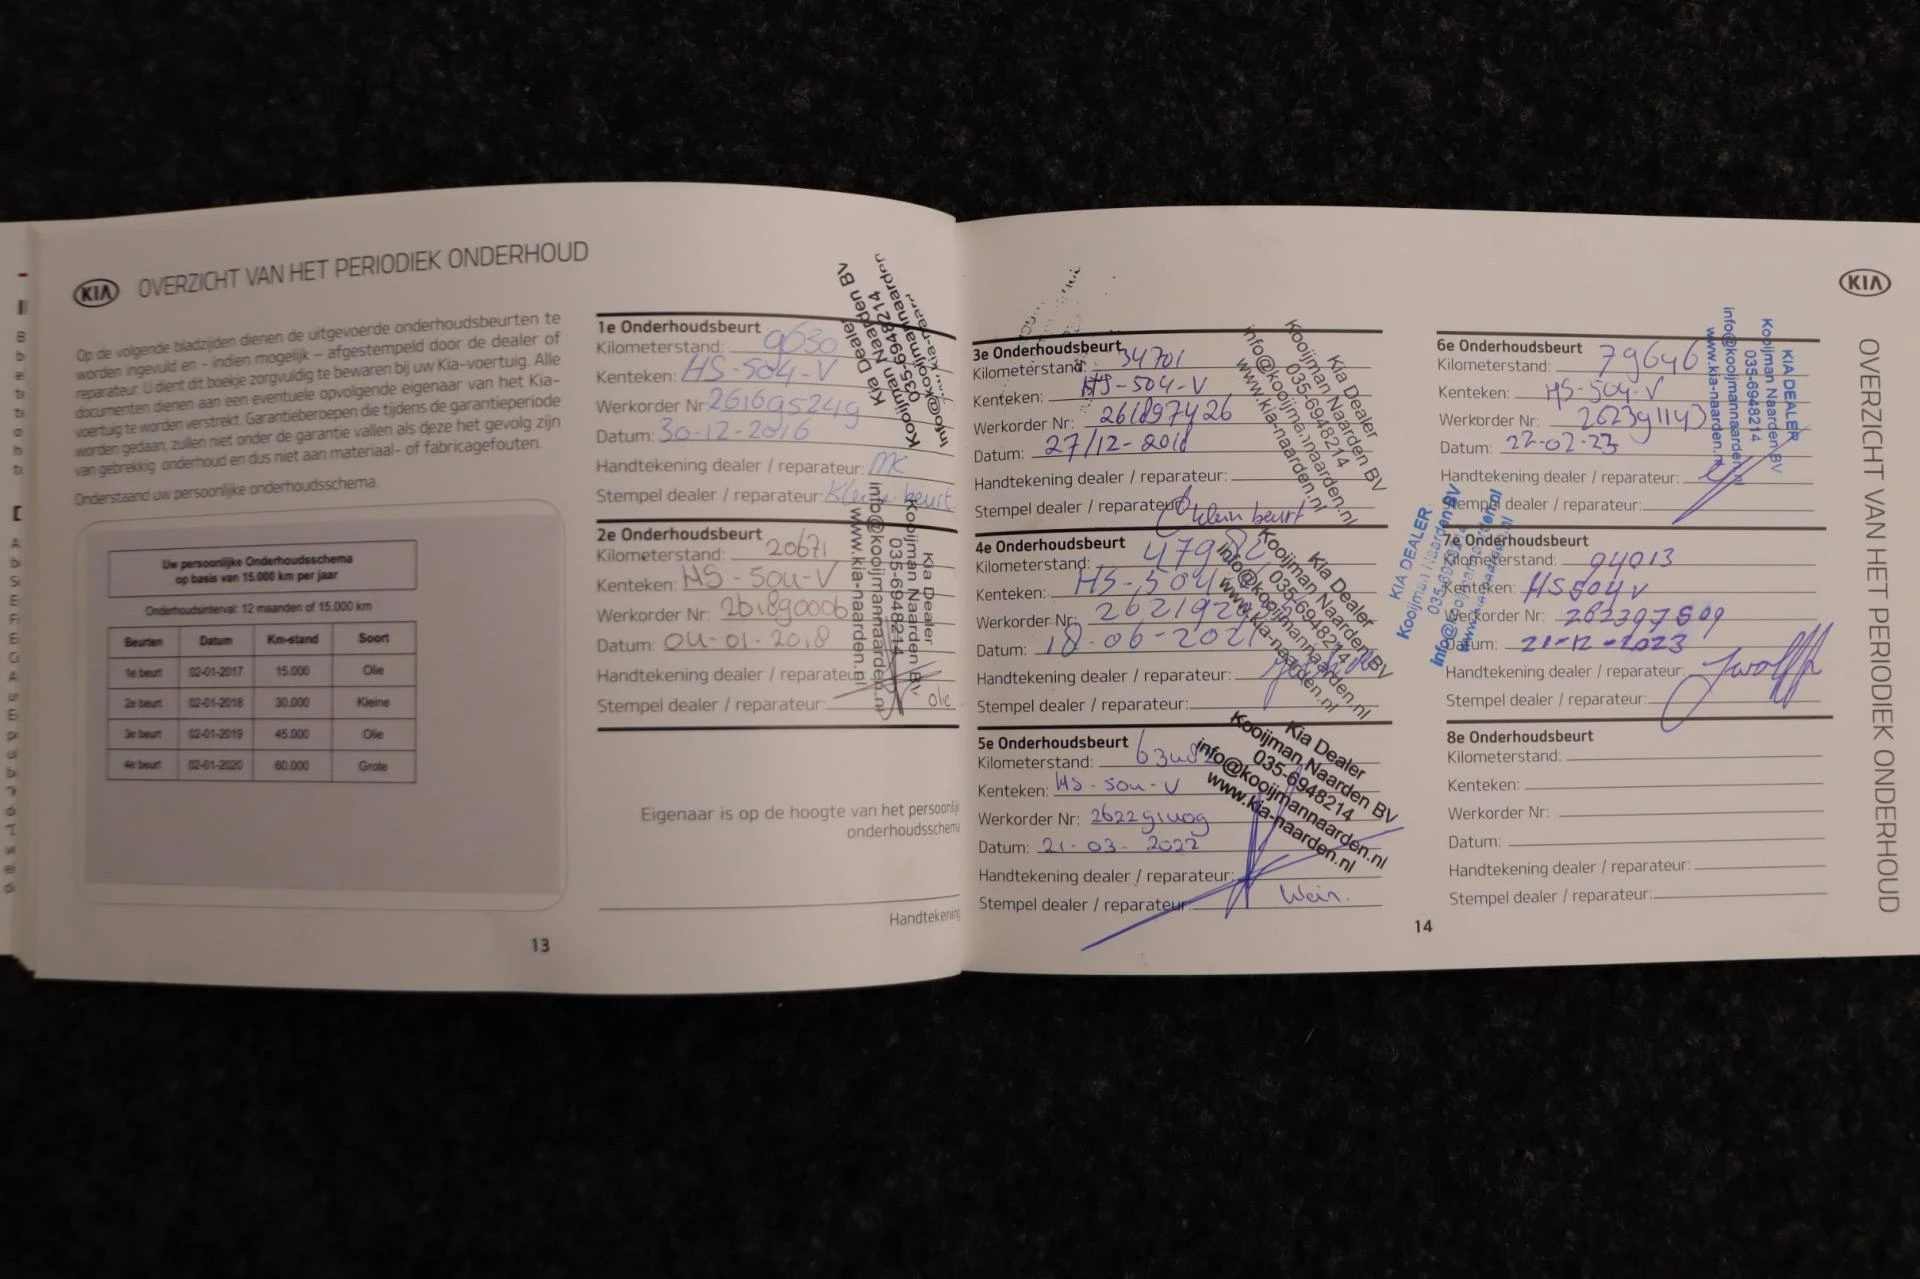 KIA OVERZICHT VAN HET PERIODIEK ONDERHOUD
Op de volgende bladzijden dienen de uitgevoerde onderhoudsbeurten te
worden ingevuld en – indien mogelijk – afgestempeld door de dealer of
reparateur. U dient dit boekje zorgvuldig te bewaren bij uw Kia-voertuig. Alle
documenten dienen aan een eventuele opvolgende eigenaar van het Kia-
voertuig te worden verstrekt. Garantieberoepen die tijdens de garantieperiode
worden gedaan, zullen niet onder de garantie vallen als deze het gevolg zijn
van gebrekkig onderhoud en dus niet aan materiaal- of fabricagefouten.
Onderstaand uw persoonlijke onderhoudsschema.
Uw persoonlijke Onderhoudsschema
op basis van 15.000 km per jaar
Onderhoudsinterval: 12 maanden of 15.000 km
Beurten Datum Km-stand Soort
1e beurt 02-01-2017 15.000 Olie
2e beurt 02-01-2018 30.000 Kleine
3e beurt 02-01-2019 45.000 Olie
4e beurt 02-01-2020 60.000 Grote
1e Onderhoudsbeurt
Kilometerstand: 9630
Kenteken: HS-504-V
Werkorder Nr: 261695249
Datum: 30-12-2016
Handtekening dealer / reparateur: MK
Stempel dealer / reparateur: Kleine beurt
Kia Dealer
Kooijman Naarden BV
035-6948214
info@kooijmannaarden
2e Onderhoudsbeurt
Kilometerstand: 20671
Kenteken: HS-504-V
Werkorder Nr: 261890006
Datum: 04-01-2018
Handtekening dealer / reparateur:
Stempel dealer / reparateur: olie
Kia Dealer
Kooijman Naarden BV
035-6948214
info@kooijmannaarden.nl
www.kia-naarden.nl
Eigenaar is op de hoogte van het persoonlij
onderhoudsschema
Handtekening
13
3e Onderhoudsbeurt
Kilometerstand: 34701
Kenteken: HS-504-V
Werkorder Nr: 261897426
Datum: 27/12-2018
Handtekening dealer / reparateur:
Stempel dealer / reparateur: klein beurt
Kia Dealer
Kooijman Naarden BV
035-6948214
info@kooijmannaarden.nl
www.kia-naarden.nl
4e Onderhoudsbeurt
Kilometerstand:
Kenteken: HS-504
Werkorder Nr:
Datum: 18-06-2021
Handtekening dealer / reparateur:
Stempel dealer / reparateur:
Kia Dealer
Kooijman Naarden BV
035-6948214
info@kooijmannaarden.nl
www.kia-naarden.nl
5e Onderhoudsbeurt
Kilometerstand:
Kenteken: HS-504-V
Werkorder Nr: 262291409
Datum: 21-03-2022
Handtekening dealer / reparateur:
Stempel dealer / reparateur:
Kia Dealer
Kooijman Naarden BV
035-6948214
info@kooijmannaarden.nl
www.kia-naarden.nl
14
6e Onderhoudsbeurt
Kilometerstand: 79646
Kenteken: HS-504-V
Werkorder Nr: 262391143
Datum: 22-02-23
Handtekening dealer / reparateur:
Stempel dealer / reparateur:
KIA DEALER
Kooijman Naarden BV
035-6948214
info@kooijmannaarden.nl
www.kia-naarden.nl
7e Onderhoudsbeurt
Kilometerstand: 94013
Kenteken: HS504V
Werkorder Nr: 262397509
Datum: 21-12-2023
Handtekening dealer / reparateur:
Stempel dealer / reparateur:
KIA DEALER
Kooijman Naarden BV
8e Onderhoudsbeurt
Kilometerstand:
Kenteken:
Werkorder Nr:
Datum:
Handtekening dealer / reparateur:
Stempel dealer / reparateur:
KIA
OVERZICHT VAN HET PERIODIEK ONDERHOUD